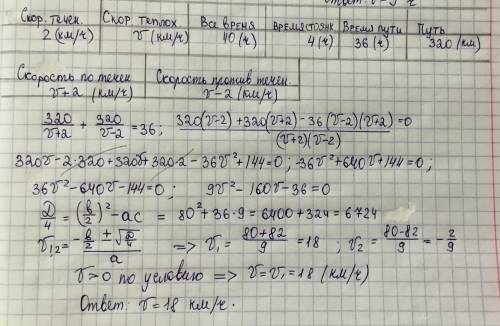 Ответ: v=9 ч
Скор. течен. Скор. теплох Все время Время стоянк Время пути Путь
2 (км/ч) v (км/ч) 40 (ч) 4 (ч) 36 (ч) 320 (км)
Скорость по течен Скорость против течен.
v+2 (км/ч) v-2 (км/ч)
320/(v+2) + 320/(v-2) = 36; (320(v-2)+320(v+2)-36(v-2)(v+2))/((v+2)(v-2)) = 0
320v-2·320+320v+320·2-36v²+144=0; -36v²+640v+144=0;
36v²-640v-144=0; 9v²-160v-36=0
D/4 = (b/2)²-ac = 80²+36·9=6400+324=6724
v₁,₂ = (-b/2 ± √(D/4))/a => v₁ = (80+82)/9 = 18; v₂ = (80-82)/9 = -2/9
v>0 по условию => v=v₁=18 (км/ч)
Ответ: v=18 км/ч.